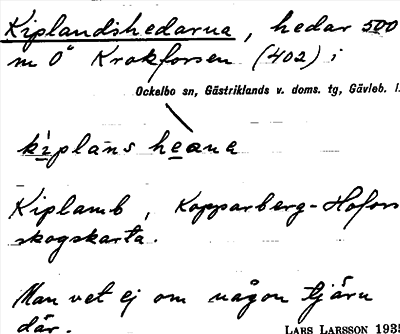 Kiplandshedarna, hedar 500
m Ö Krokforsen (402) i
Ockelbo sn, Gästriklands v. doms. tg, Gävleb. l.
kiplans heana
Kiplamb, Kopparberg-Hofors
skogskarta.
Man vet ej om någon tjärn
där.
LARS LARSSON 193